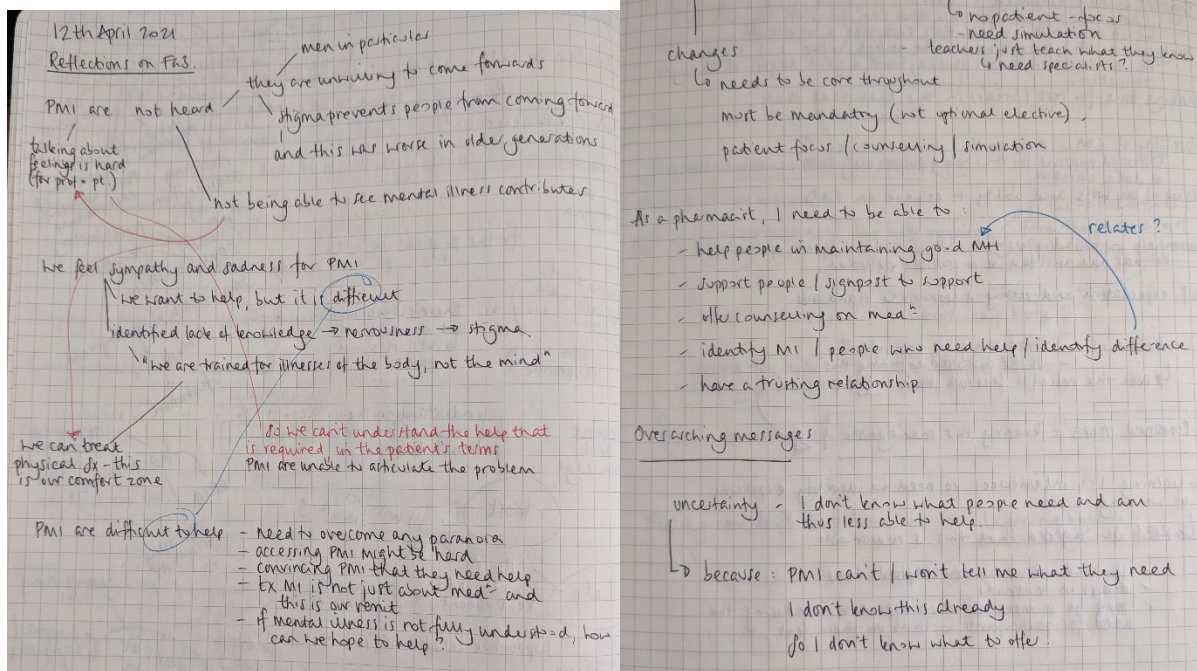 12th April 2021
Reflections on FG3.
men in particular
they are unwilling to come forwards
PMI are not heard
stigma prevents people from coming forward
and this was worse in older generations
talking about
feelings is hard
(for prof + pt.)
not being able to see mental illness contributes
We feel sympathy and sadness for PMI
we want to help, but it is difficult
identified lack of knowledge → nervousness → stigma
"we are trained for illnesses of the body, not the mind"
We can treat
physical sx - this
is our comfort zone
So we can't understand the help that
is required, in the patient's terms
PMI are unable to articulate the problem
PMI are difficult to help - need to overcome any paranoia
- accessing PMI might be hard
- convincing PMI that they need help
- tx MI is not just about medⁿ and
this is our remit
- if mental illness is not fully understood, how
can we hope to help?
↳ no patient-focus
- need simulation
- teachers just teach what they know
↳ need specialists?
changes
↳ needs to be core throughout
must be mandatory (not optional elective).
patient focus / counselling / simulation
As a pharmacist, I need to be able to:
relates?
- help people in maintaining good MH
- support people / signpost to support
- offer counselling on medⁿ
- identify MI / people who need help / identify difference
- have a trusting relationship
Overarching messages
uncertainty - I don't know what people need and am
thus less able to help.
↳ because: PMI can't / won't tell me what they need
I don't know this already
So I don't know what to offer.